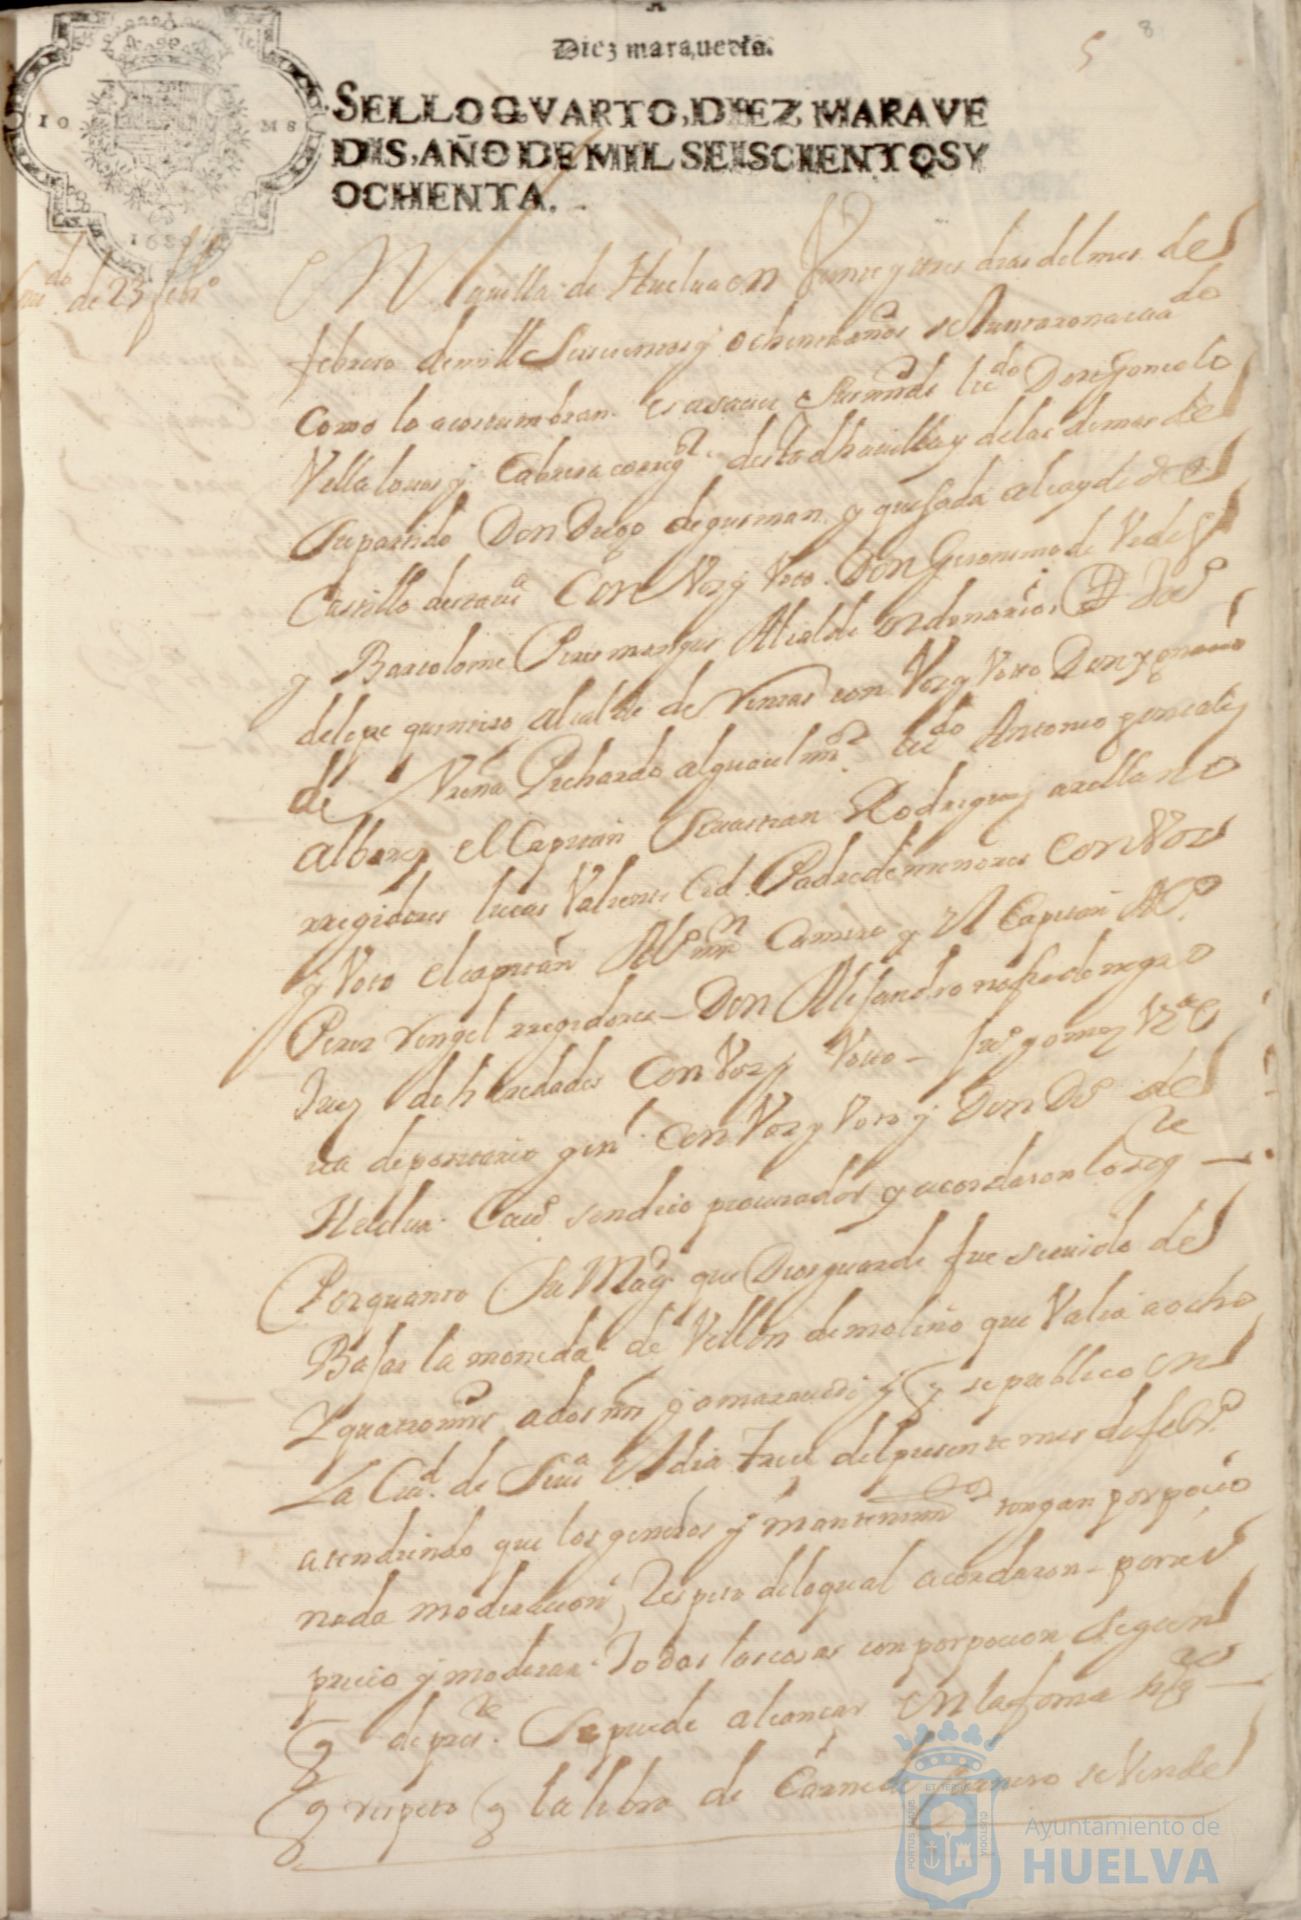 Diez maravedis.
5
8
SELLO QVARTO, DIEZ MARAVE
DIS, AÑO DE MIL SEISCIENTOS Y
OCHENTA.
10 MS
1680
de 23 febrº
En la villa de Huelua en Veinte y tres dias del mes de
febrero de mill Seiscientos y ochenta años se Juntaron a cauildo
Como lo acostumbran es a sauer sus mrds lizdo Don Gonzalo
Villalouos y Cabrera corregor desta dha uilla y de las demas de
Su partido Don Diego de gusman y quesada alcayde de el
Castillo desta uª Con Voz y Voto Don Geronimo de
y Bartolome Peres marques Alcalde ordenarios
de lepe quintero alcalde de Rentas con Voz y Voto Don ygnacio
de Vreña Pichardo alguacil mor lizdo Antonio gonzales
albarez el Capitan Seuastian Rodriguez arellano
rregidores lucas Valiente Cid Padre de menores Con Voz
y Voto el capitan min Camero y el Capitan
Perez rengel rregidores Don Alejandro negro
Juez de heredades Con Voz y Voto franco gomez
ua depositario genl Con Voz y Voto y Don Do de
Huelua Cauo sindico procurador y acordaron lo sigte
Por quanto Su Magd que Dios guarde fue seruido de
Bajar la moneda de Vellon de molino que Valia a ocho
y quatro mrs a dos mrs y a marauedi y se publico en
La Ciud de Seuª el dia trece del presente mes de febrº
atendiendo que los generos y mantenimtos tengan porpocio
nada moderacion Respeto de lo qual acordaron poner
precio y moderar todas las cosas con porpocion segun
q de preste Se puede alcansar en la forma sigte
q respeto q la libra de Carne de Carnero se Vende
Ayuntamiento de
HUELVA